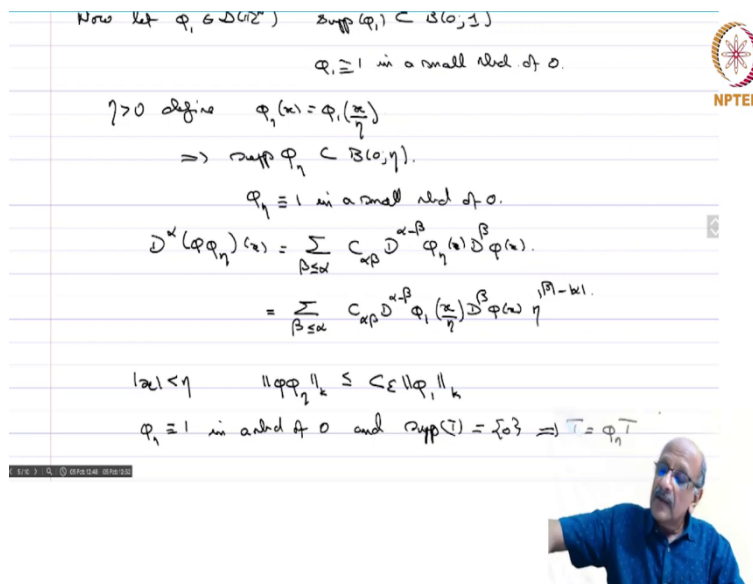 Now let φ₁ ∈ D(ℝⁿ) supp(φ₁) ⊂ B(0;1)
φ₁ ≡ 1 in a small nbd of 0.
η>0 define φ_η(x) = φ₁(x/η)
⇒ supp φ_η ⊂ B(0;η).
φ_η ≡ 1 in a small nbd of 0.
D^α(φφ_η)(x) = Σ_{β≤α} C_{αβ} D^{α-β} φ_η(x) D^β φ(x).
= Σ_{β≤α} C_{αβ} D^{α-β} φ₁(x/η) D^β φ(x) η^{|β|-|α|}.
|x|<η ‖φφ_η‖_k ≤ Cε‖φ₁‖_k
φ_η ≡ 1 in a nbd of 0 and supp(T) = {0} ⇒ T = φ_η T
NPTEL
5/10
05 Feb 12:48 05 Feb